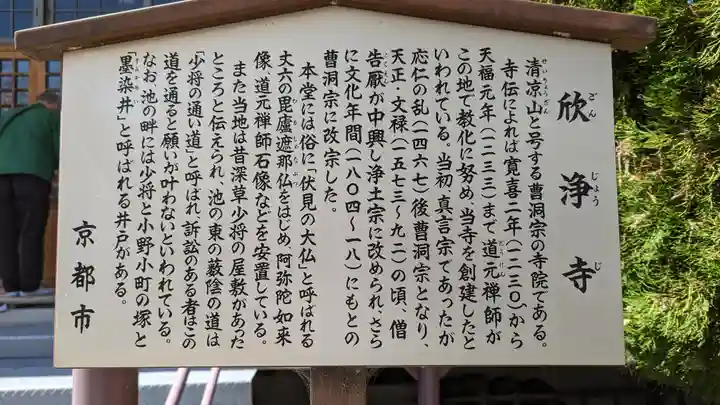 欣浄寺
ごんじょうじ
清凉山と号する曹洞宗の寺院である。
寺伝によれば寛喜二年(一二三〇)から
天福元年(一二三三)まで道元禅師が
この地で教化に努め、当寺を創建したと
いわれている。当初、真言宗であったが
応仁の乱(一四六七)後曹洞宗となり、
天正・文禄(一五七三〜九二)の頃、僧
告厭が中興し浄土宗に改められ、さら
に文化年間(一八〇四〜一八)にもとの
曹洞宗に改宗した。
本堂には俗に「伏見の大仏」と呼ばれる
丈六の毘盧遮那仏をはじめ、阿弥陀如来
像、道元禅師石像などを安置している。
また当地は昔深草少将の屋敷があった
ところと伝えられ、池の東の藪陰の道は
「少将の通い道」と呼ばれ、訴訟のある者はこの
道を通ると願いが叶わないといわれている。
なお、池の畔には少将と小野小町の塚と
「墨染井」と呼ばれる井戸がある。
京都市